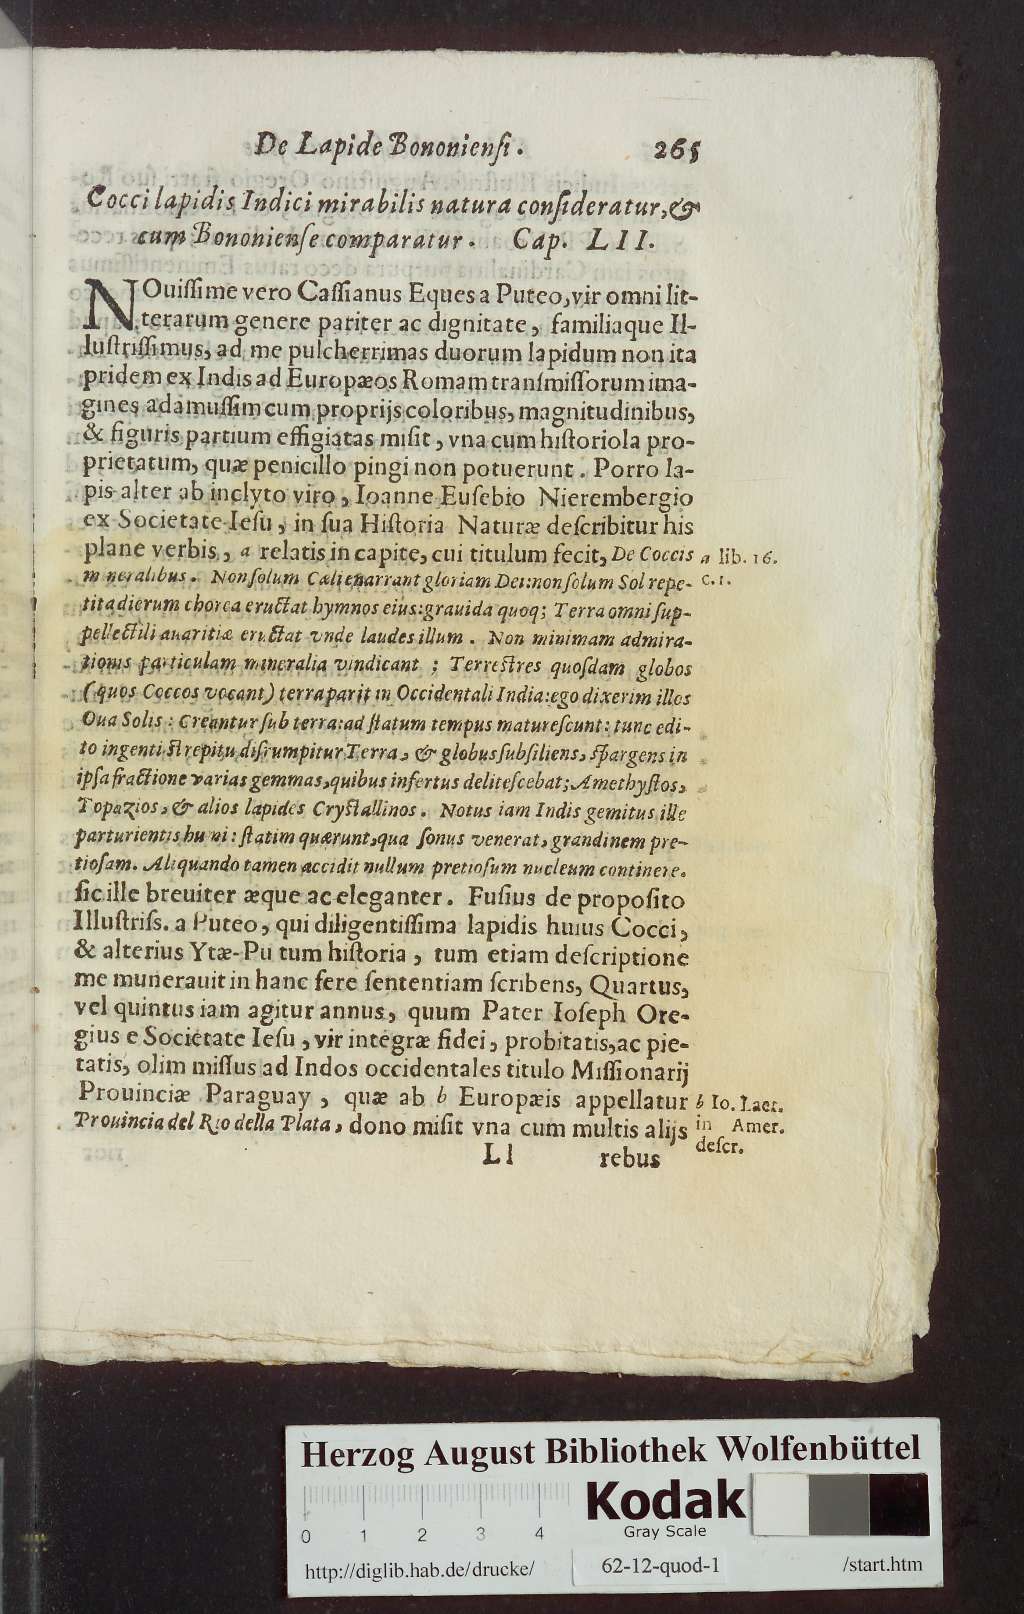 De Lapide Bononienſi. 265
Cocci lapidis Indici mirabilis natura conſideratur, &
cum Bononienſe comparatur. Cap. LII.
NOuiſſime vero Caſſianus Eques a Puteo, vir omni lit-
terarum genere pariter ac dignitate, familiaque Il-
luſtriſſimus, ad me pulcherrimas duorum lapidum non ita
pridem ex Indis ad Europæos Romam tranſmiſſorum ima-
gines adamuſſim cum proprijs coloribus, magnitudinibus,
& figuris partium effigiatas miſit, vna cum hiſtoriola pro-
prietatum, quæ penicillo pingi non potuerunt. Porro la-
pis alter ab inclyto viro, Ioanne Euſebio Nierembergio
ex Societate Ieſu, in ſua Hiſtoria Naturæ deſcribitur his
plane verbis, a relatis in capite, cui titulum fecit, De Coccis
a lib. 16.
c. 1.
mineralibus. Non ſolum Cæli enarrant gloriam Dei: non ſolum Sol repe-
tita dierum chorea eructat hymnos eius: grauida quoq; Terra omni ſup-
pellectili auaritiæ eructat vnde laudes illum. Non minimam admira-
tionis particulam mineralia vindicant; Terreſtres quoſdam globos
(quos Coccos vocant) terra parit in Occidentali India: ego dixerim illos
Oua Solis: Creantur ſub terra: ad ſtatum tempus matureſcunt: tunc edi-
to ingenti ſtrepitu diſrumpitur Terra, & globus ſubſiliens, ſpargens in
ipſa fractione varias gemmas, quibus infertus deliteſcebat; Amethyſtos,
Topazios, & alios lapides Cryſtallinos. Notus iam Indis gemitus ille
parturientis humi: ſtatim quærunt, qua ſonus venerat, grandinem pre-
tioſam. Aliquando tamen accidit nullum pretioſum nucleum continere.
ſic ille breuiter æque ac eleganter. Fuſius de propoſito
Illuſtriſs. a Puteo, qui diligentiſſima lapidis huius Cocci,
& alterius Ytæ-Pu tum hiſtoria, tum etiam deſcriptione
me munerauit in hanc fere ſententiam ſcribens, Quartus,
vel quintus iam agitur annus, quum Pater Ioſeph Ore-
gius e Societate Ieſu, vir integræ fidei, probitatis, ac pie-
tatis, olim miſſus ad Indos occidentales titulo Miſſionarij
Prouinciæ Paraguay, quæ ab b Europæis appellatur
Prouincia del Rio della Plata, dono miſit vna cum multis alijs
b Io. Laet.
in Amer.
deſcr.
Ll rebus
Herzog August Bibliothek Wolfenbüttel
0 1 2 3 4
Kodak
Gray Scale
http://diglib.hab.de/drucke/ 62-12-quod-1 /start.htm